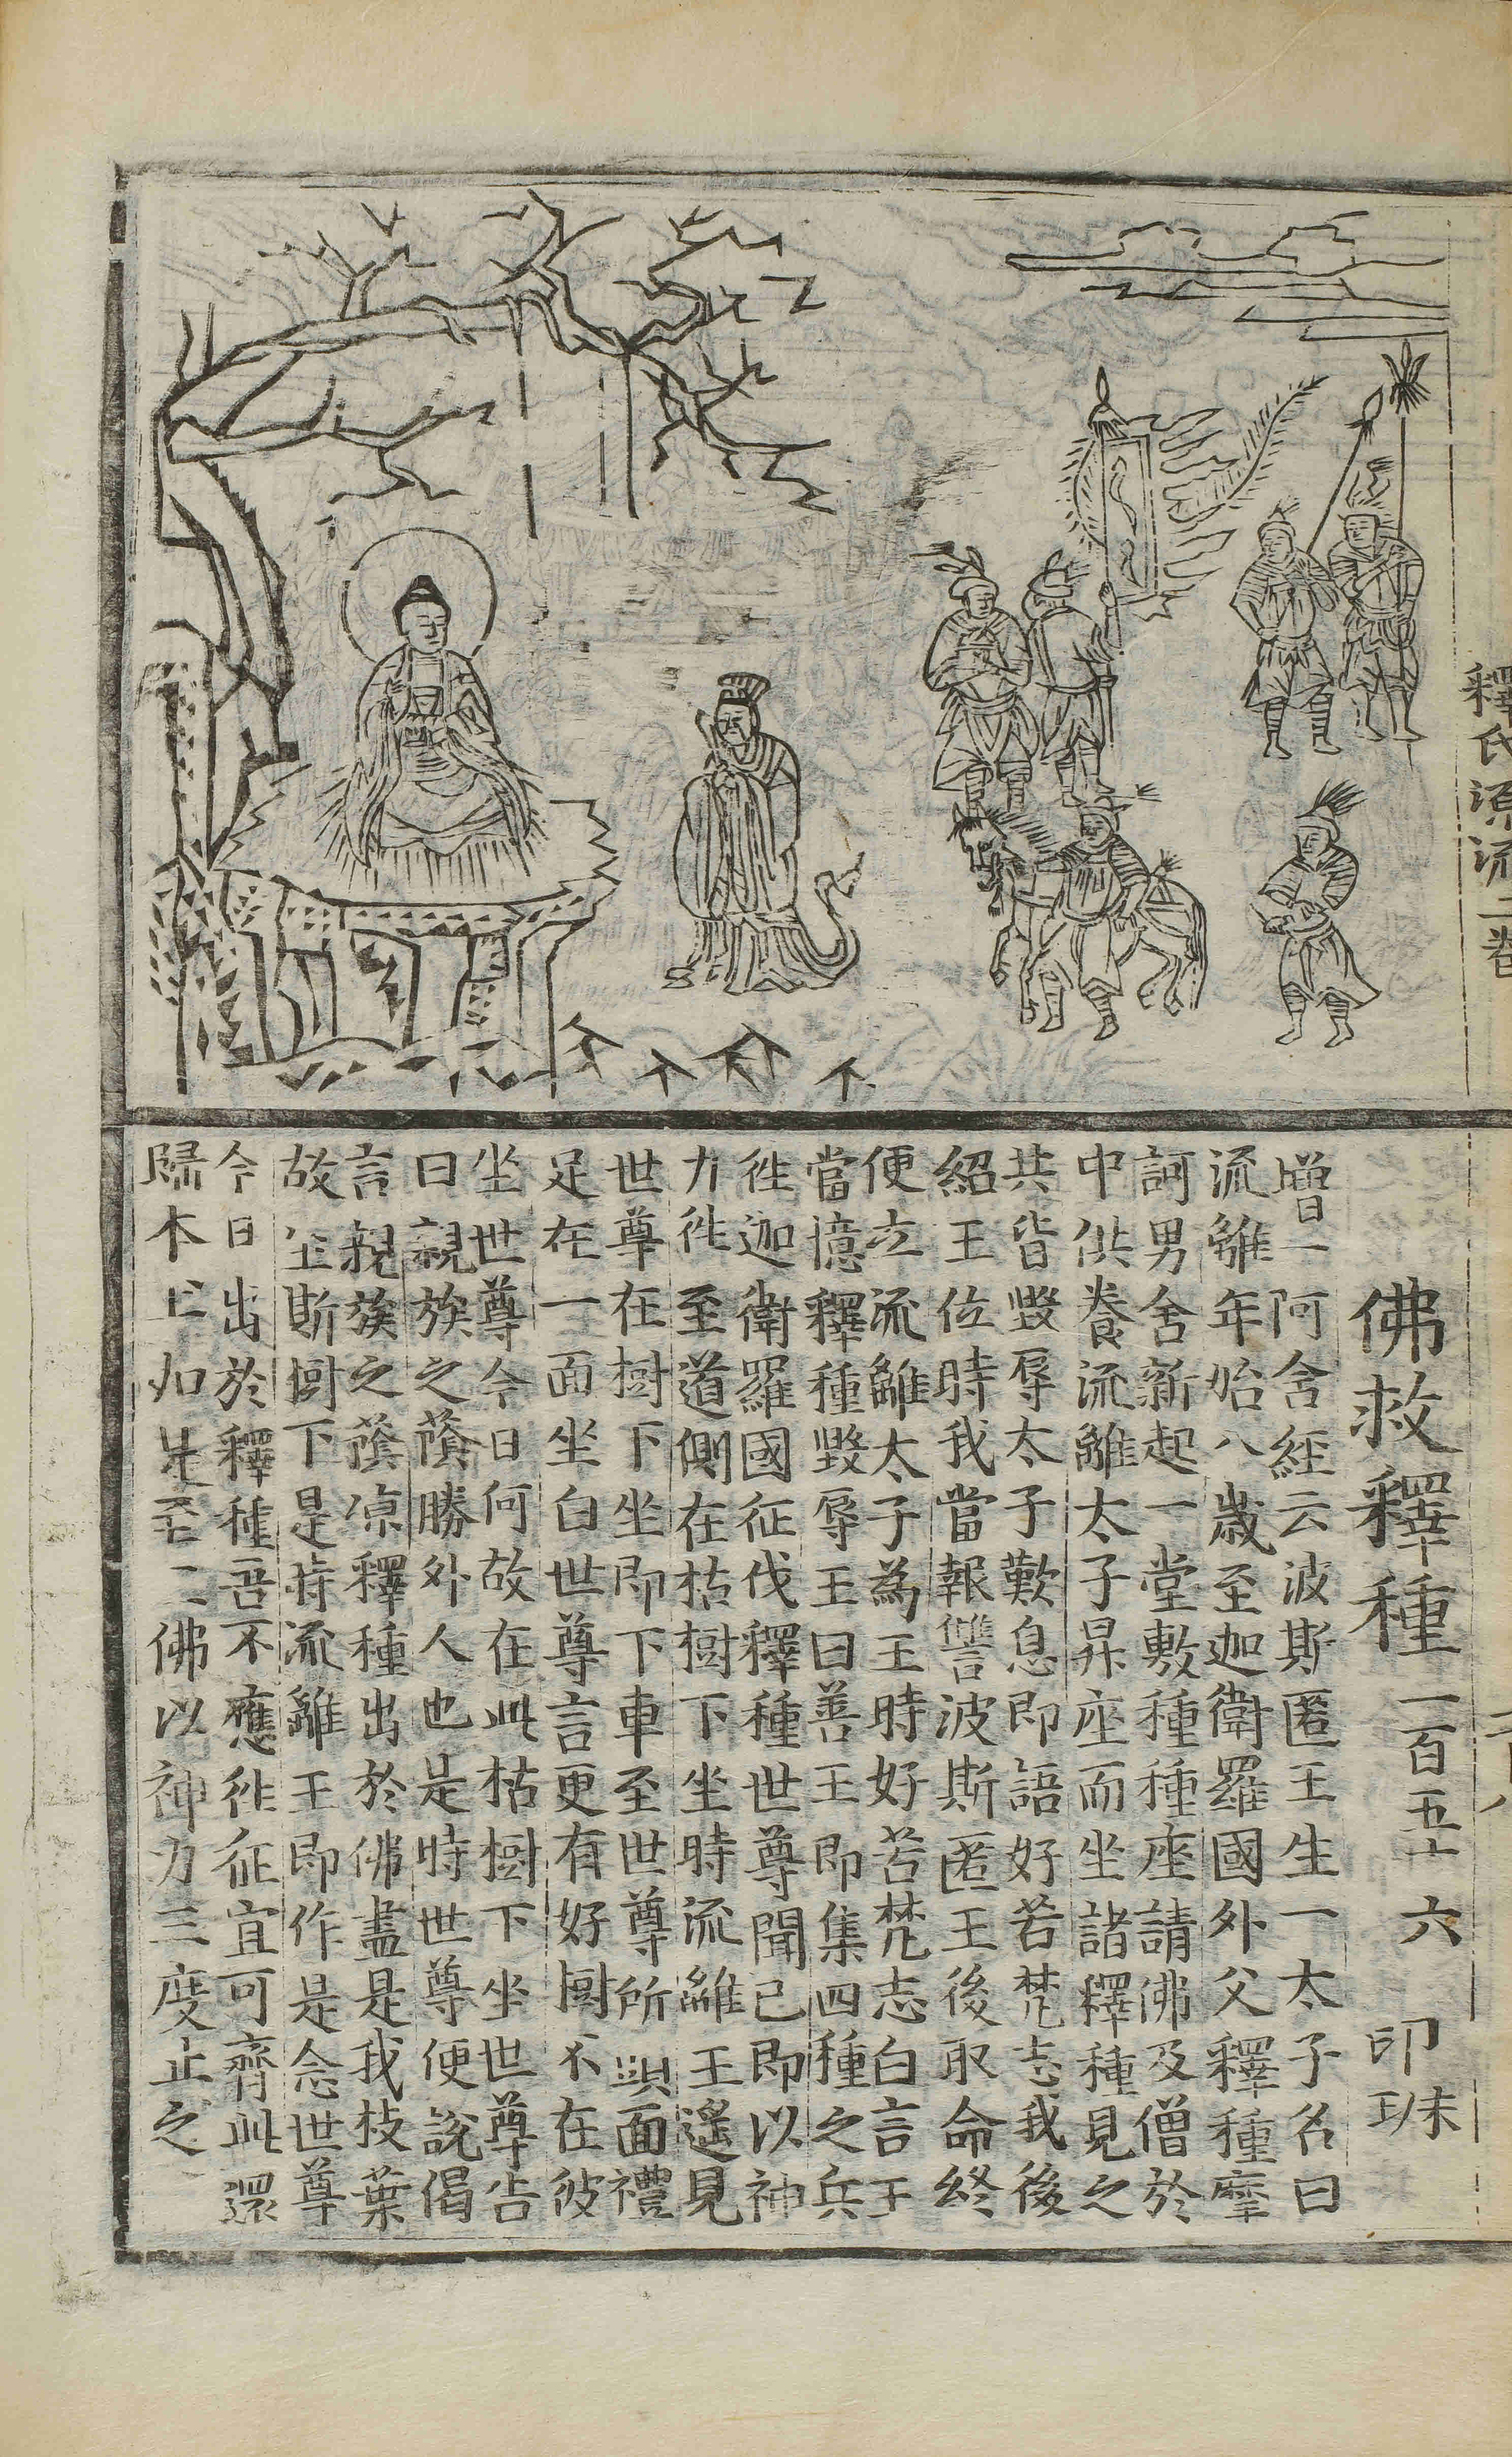 釋氏源流二卷
佛救釋種 一百五十六 印珠
增一阿含經云波斯匿王生一太子名曰
流離年始八歲至迦衛羅國外父釋種摩
訶男舍新起一堂敷種種座請佛及僧於
中供養流離太子昇座而坐諸釋種見之
共皆毀辱太子歎息即語好苦梵志我後
紹王位時我當報讐波斯匿王後取命終
便立流離太子為王時好苦梵志白言王
當憶釋種毀辱王曰善王即集四種之兵
徃迦衛羅國征伐釋種世尊聞已即以神
力徃至道側在枯樹下坐時流離王遙見
世尊在樹下坐即下車至世尊所頭面禮
足在一面坐白世尊言更有好樹不在彼
坐世尊今日何故在此枯樹下坐世尊告
曰親族之蔭勝外人也是時世尊便說偈
言親族之蔭凉釋種出於佛盡是我枝葉
故坐斯樹下是時流離王即作是念世尊
今日出於釋種吾不應徃征宜可齊此還
歸本土如是至二佛以神力三度止之